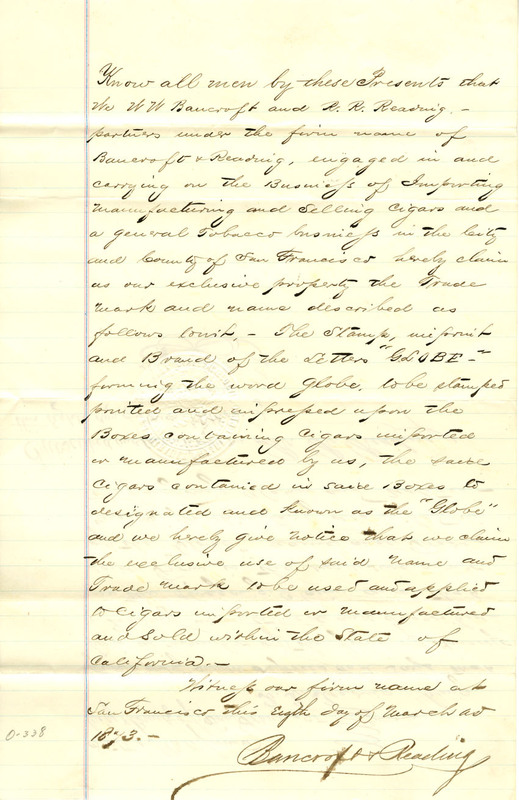 Know all men by these Presents that
We W W Bancroft and R. R. Reading. -
partners under the firm name of
Bancroft & Reading, engaged in and
carrying on the Business of Importing
manufacturing and Selling Cigars and
a general Tobacco business in the City
and County of San Francisco hereby claim
as our exclusive property the Trade
Mark and name described as
follows towit, - The Stamp, imprint
and Brand of the Letters "GLOBE -"
forming the word Globe, to be stamped
printed and impressed upon the
Boxes, containing Cigars imported
or manufactured by us, the said
Cigars contained in said Boxes to
designated and known as the "Globe"
and we hereby give notice that we claim
the exclusive use of said name and
Trade Mark to be used and applied
to Cigars imported or manufactured
and Sold within the State of
California. -
Witness our firm name at
San Francisco this day of March AD
1873. -
Bancroft & Reading
0-338